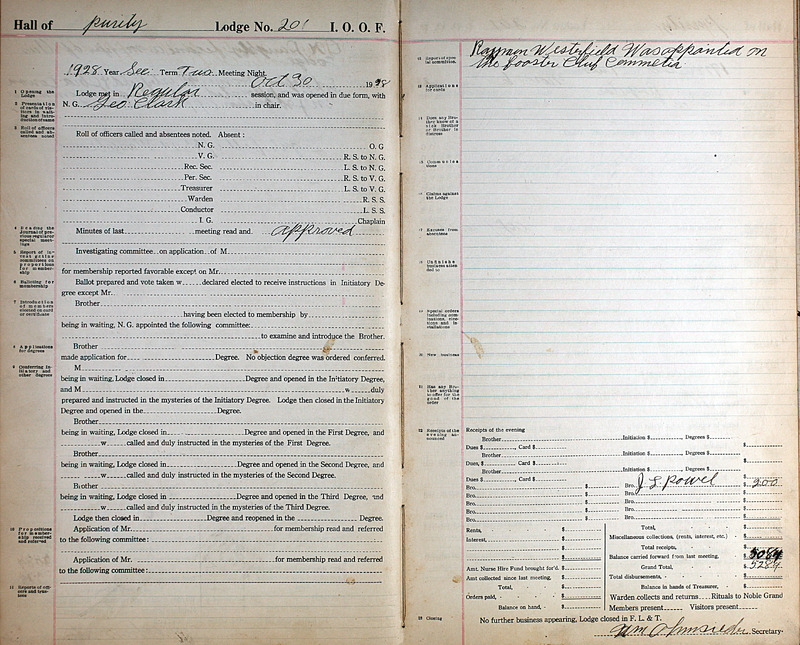 Hall of Purity Lodge No. 201 I. O. O. F.
1928 Year Sec Term Two Meeting Night
Oct 30 1928
Lodge met in Regular session, and was opened in due form, with
N. G. Geo Clark in chair.
Roll of officers called and absentees noted. Absent:
N. G. O. G
V. G. R. S. to N. G.
Rec. Sec. L. S. to N. G.
Per. Sec. R. S. to V. G.
Treasurer L. S. to V. G.
Warden R. S. S.
Conductor L. S. S.
I. G. Chaplain
Minutes of last meeting read and approved
Investigating committee on application of M
for membership reported favorable except on Mr.
Ballot prepared and vote taken w declared elected to receive instructions in Initiatory De-
gree except Mr.
Brother
having been elected to membership by
being in waiting, N. G. appointed the following committee:
to examine and introduce the Brother.
Brother
made application for Degree. No objection degree was ordered conferred.
M
being in waiting, Lodge closed in Degree and opened in the Initiatory Degree,
and M w duly
prepared and instructed in the mysteries of the Initiatory Degree. Lodge then closed in the Initiatory
Degree and opened in the Degree.
Brother
being in waiting, Lodge closed in Degree and opened in the First Degree, and
w called and duly instructed in the mysteries of the First Degree.
Brother
being in waiting, Lodge closed in Degree and opened in the Second Degree, and
w called and duly instructed in the mysteries of the Second Degree.
Brother
being in waiting, Lodge closed in Degree and opened in the Third Degree, and
w called and duly instructed in the mysteries of the Third Degree.
Lodge then closed in Degree and reopened in the Degree.
Application of Mr. for membership read and referred
to the following committee:
Application of Mr. for membership read and referred
to the following committee:
1 Opening the
Lodge
2 Presentation
3 Roll of officers
called and absentees
noted
6 Balloting for
membership
7 Introduction
8 Applications
for degrees
9 Conferring Initiatory
and
other degrees
10 Propositions
for membership
received
and referred
11 Reports of officers
and trustees
Raymon Westerfield Was appointed on
the Booster Club Commetia
Applications
for cards
Claims against
the Lodge
Excuses from
absentees
New business
Receipts of the
evening announced
Closing
Receipts of the evening
Brother Initiation $ , Degrees $
Dues $ , Card $ $
Brother Initiation $ , Degrees $
Dues, $ , Card $ $
Brother Initiation $ , Degrees $
Dues $ , Card $ $
Bro. $ Bro. J L Powel $ 2.00
Bro. $ Bro.
Bro. $ Bro.
Bro. $ Bro.
Rents, $ Total,
Interest, $ Miscellaneous collections, (rents, interest, etc.)
Total receipts,
Balance carried forward from last meeting, $ 5084
Amt. Nurse Hire Fund brought for'd. $ Grand Total, $ 5284
Amt collected since last meeting, $ Total disbursements,
Total, $ Balance in hands of Treasurer, $
Orders paid, $ Warden collects and returns Rituals to Noble Grand
Balance on hand, $ Members present Visitors present
No further business appearing, Lodge closed in F. L. & T.
Wm Secretary.